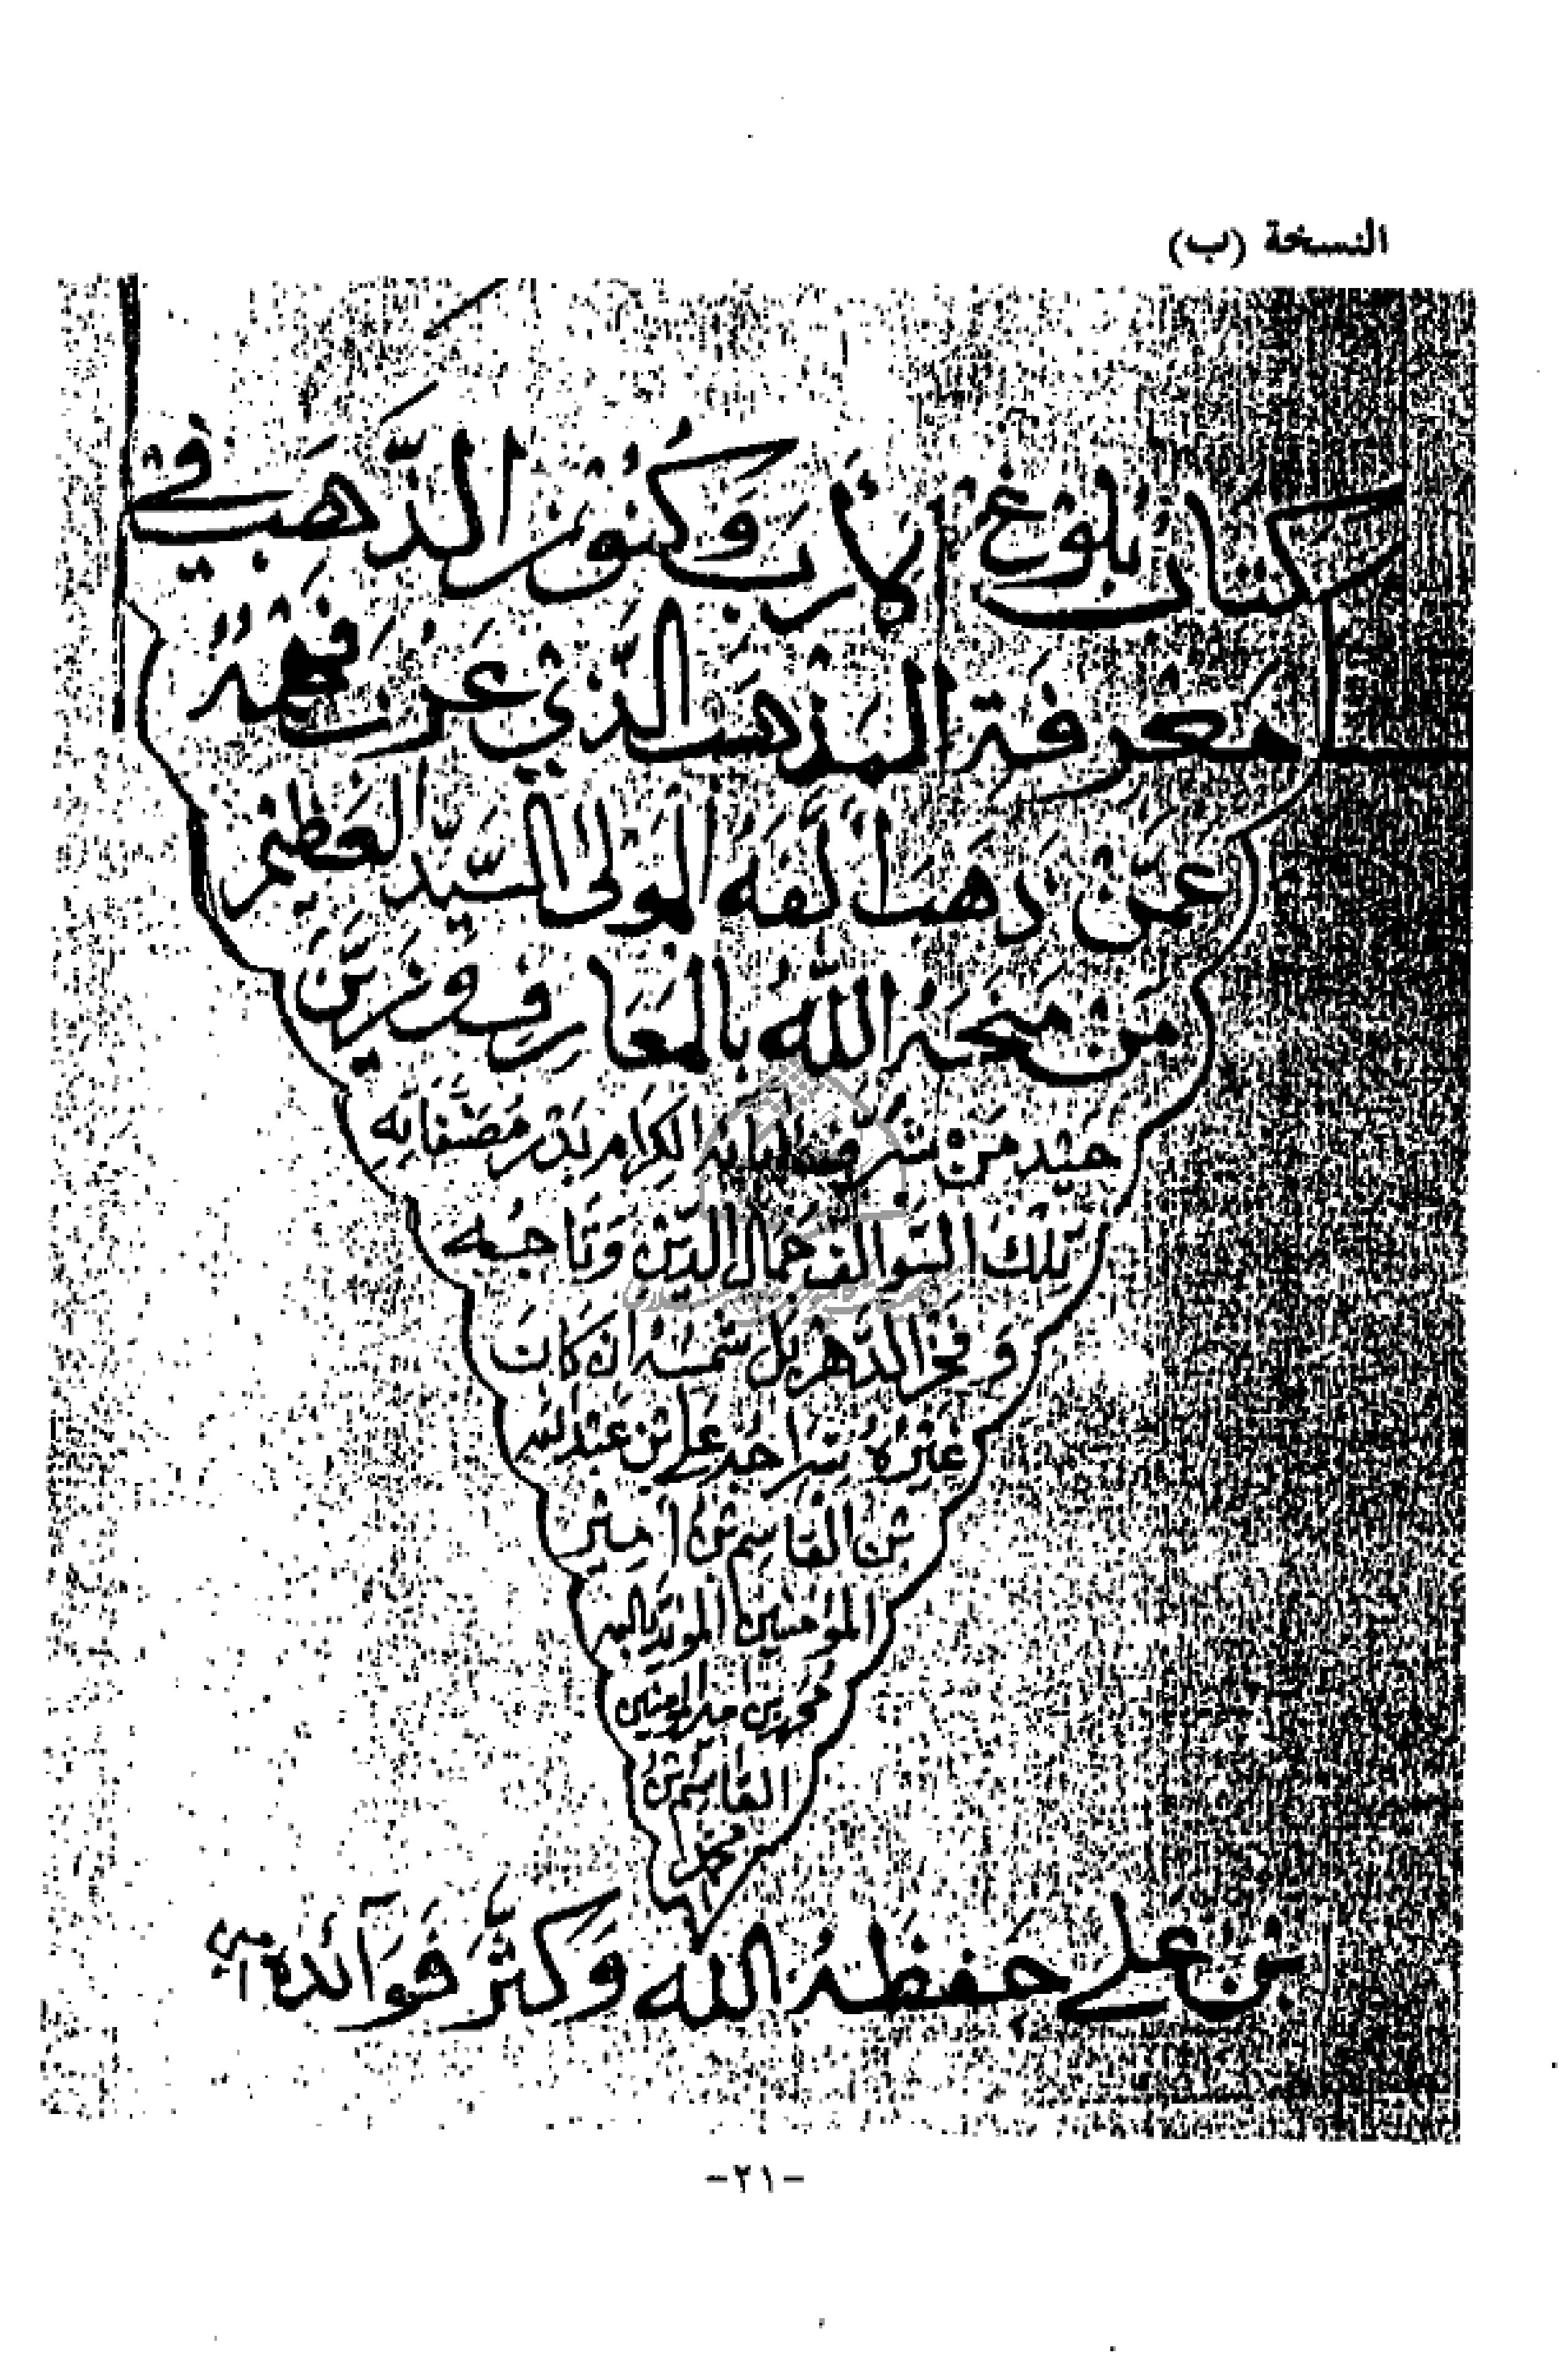 النسخة (ب)
كتاب بلوغ الأرب وكنوز الذهب في
معرفة المذهب الذي عن فهمه
عمن ذهب ألفه المولى السيد العظيم
من منحه الله بالمعارف وزين
جيد من شرف آبائه الكرام بدر مصنفاته
تلك التوالف جمال الدين وتاجه
وفخر الدهر بل شمسه ان كان
غيره علي بن عبد الله
بن القاسم بن أمير
المؤمنين المؤيد بالله
محمد بن أمير المؤمنين
القاسم بن
محمد
بن علي حفظه الله وكثر فوائده امين
-٢١-